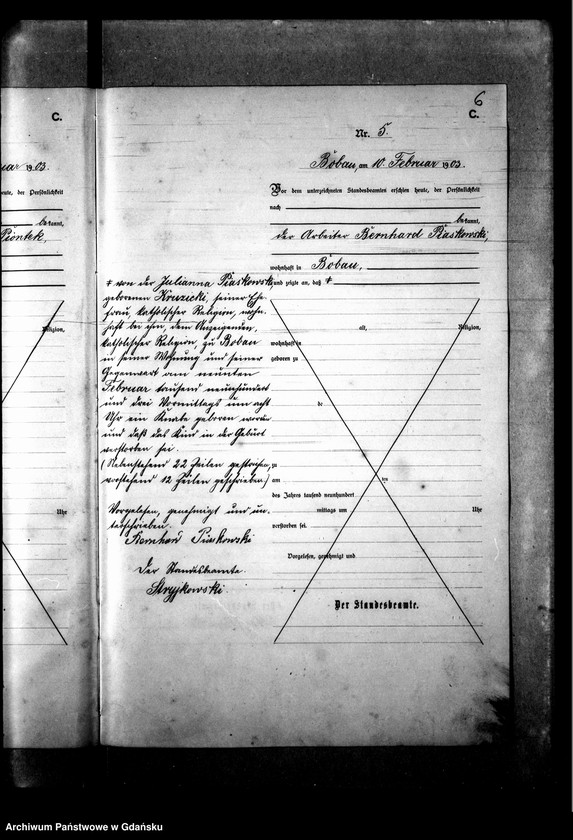 6
C.
C.
Nr. 5.
uar 1903.
Bobau, am 10. Februar 1903.
eute, der Persönlichkeit
Vor dem unterzeichneten Standesbeamten erschien heute, der Persönlichkeit
nach
bekannt,
bekannt,
Piontek,
der Arbeiter Bernhard Piaskowski,
wohnhaft in Bobau,
und zeigte an, daß +
+ von der Julianna Piaskowski
geborenen Kruzicki, seiner Ehe
frau, katholischer Religion, wohn-
haft bei ihm, dem Anzeigenden,
katholischer Religion, zu Bobau
in seiner Wohnung und seiner
Gegenwart am neunten
Februar tausend neunhundert
und drei Vormittags um acht
Uhr ein Knabe geboren worden
und daß das Kind in der Geburt
verstorben sei.
(Nebenstehend 22 Zeilen gestrichen,
vorstehend 12 Zeilen geschrieben)
Vorgelesen, genehmigt und un-
terschrieben.
Bernhard Piaskowski
Der Standesbeamte.
Stryjkowski.
Religion,
Uhr
alt, Religion,
wohnhaft in
geboren zu
de
zu
am ten
des Jahres tausend neunhundert
mittags um Uhr
verstorben sei.
Vorgelesen, genehmigt und
Der Standesbeamte.
Archiwum Państwowe w Gdańsku